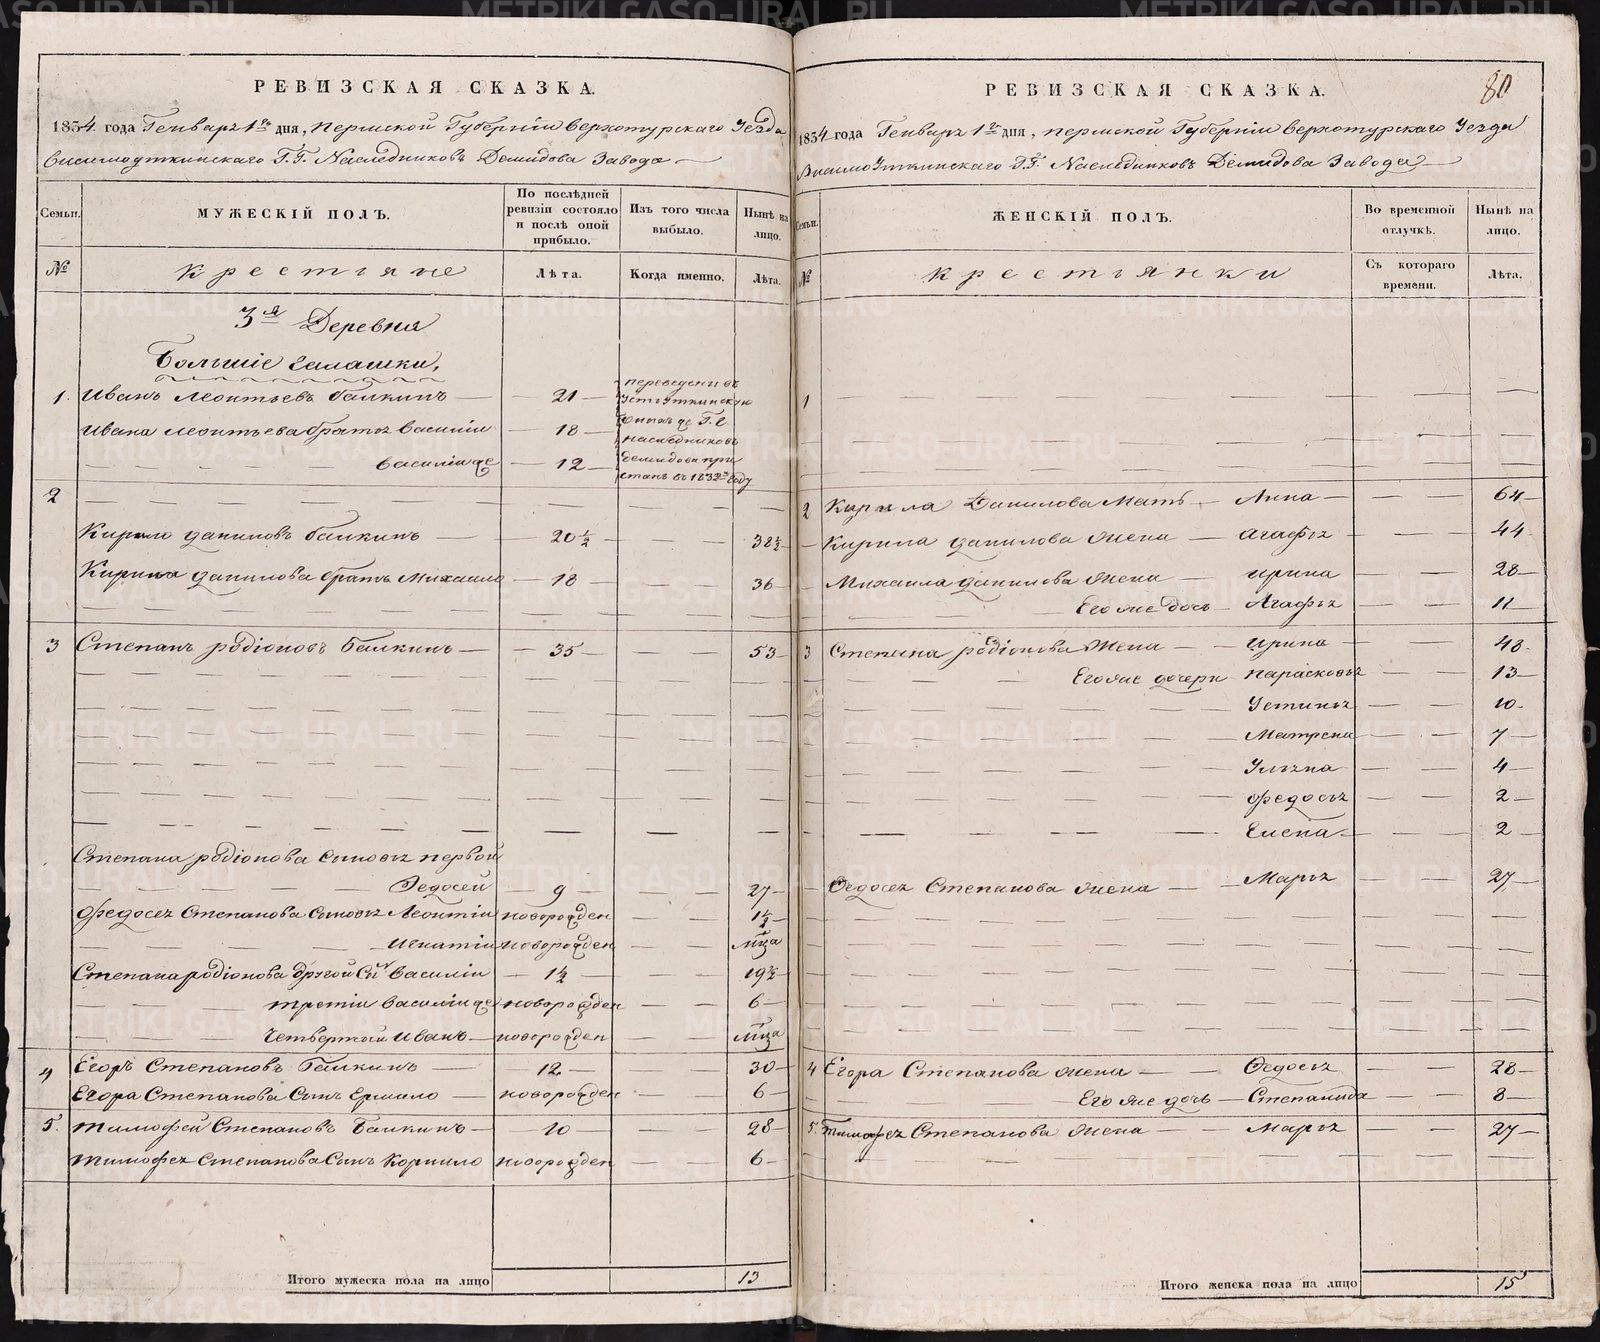 РЕВИЗСКАЯ СКАЗКА.
1834 года Генваря 1го дня, Пермской Губернии Верхотурскаго Уезда
Висимоуткинскаго Г.Г. Наследниковъ Демидова Завода
Семьи.
МУЖЕСКІЙ ПОЛЪ.
По послѣдней ревизіи состояло и послѣ оной прибыло.
Изъ того числа выбыло.
Нынѣ на лицо.
№
Крестьяне
Лѣта.
Когда именно.
Лѣта.
3я Деревня
Большіе Галашки,
1. Иванъ Леонтьевъ Галкинъ 21 переведены въ
Устьуткинскую
Ивана Леонтьева братья Василіи 18
наследниковъ
Василіи же 12 Демидова при
стань въ 1832м году
2
Кирило Даниловъ Галкинъ 20½ 38½
Кирила Данилова братъ Михаило 18 36
3 Степанъ Родіоновъ Галкинъ 35 53
Степана Родіонова сыновья первой
Федосей 9 27
Федосея Степанова сыновья Леонтіи новорожден 1½
Игнатіи новорожден мца
Степана Родіонова другой сынъ Василіи 1½ 19½
третіи Василіи же новорожден 6
Четвертый Иванъ новорожден мца
4 Егоръ Степановъ Галкинъ 12 30
Егора Степанова Сынъ Ермило новорожден 6
5. Тимофей Степановъ Галкинъ 10 28
Тимофея Степанова Сынъ Корнило новорожден 6
Итого мужеска пола на лицо 13
80
РЕВИЗСКАЯ СКАЗКА.
1834 года Генваря 1го дня, Пермской Губерніи Верхотурскаго Уезда
Висимо Уткинскаго Г.Г. Наследниковъ Демидова Завода
Семьи.
ЖЕНСКІЙ ПОЛЪ.
Во временной отлучкѣ.
Нынѣ на лицо.
№
Крестьянки
Съ котораго времени.
Лѣта.
1
2 Кирила Данилова Мать Анна 64
Кирила Данилова жена Агафья 44
Михаила Данилова жена Ирина 28
Его же дочь Агафья 11
3 Степана Родіонова Жена Ирина 48
Его же дочери Парасковья 13
Устинья 10
Матрена 7
Ульяна 4
Федосья 2
Елена 2
Федосея Степанова жена Марья 27
4 Егора Степанова жена Федосья 28
Его же дочь Степанида 8
5. Тимофея Степанова жена Марья 27
Итого женска пола на лицо 15
METRIKI.GASO-URAL.RU